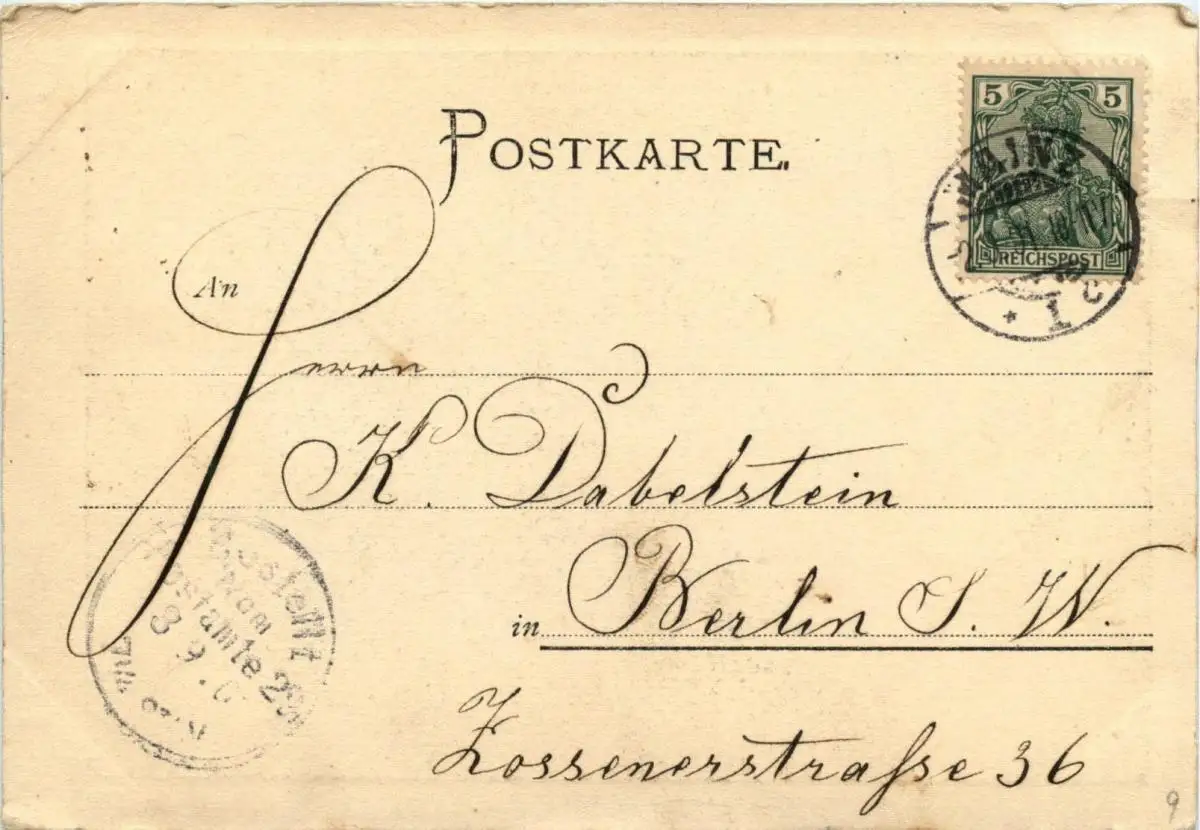 POSTKARTE.
5 5
REICHSPOST
MAINZ
1
An
Herrn
K. Dabelstein
in Berlin S. W.
Zossenerstrafse 36
Bestellt
vom
Postamte 29
3 9.
9